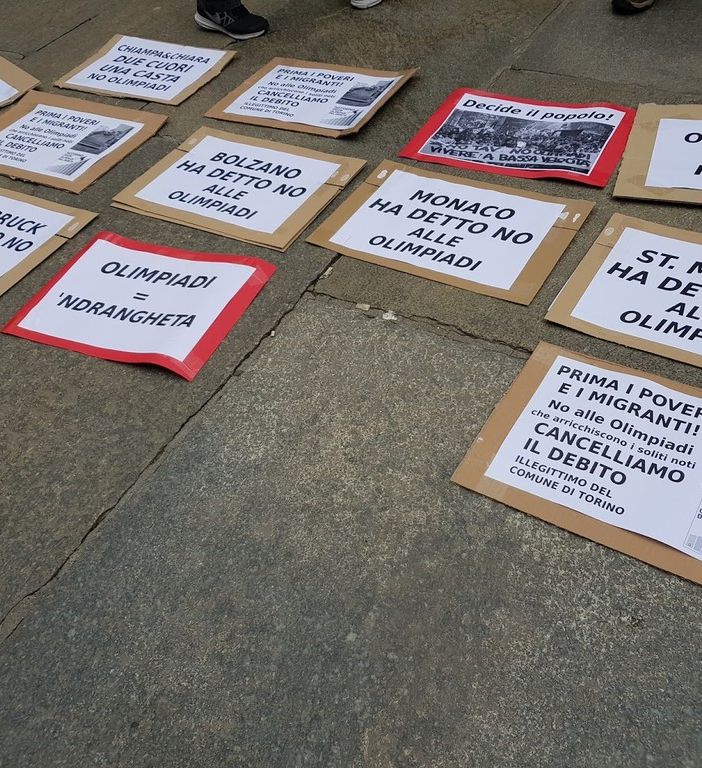 CHIAMPA&CHIARA
DUE CUORI
UNA CASTA
NO OLIMPIADI
PRIMA I POVERI
E I MIGRANTI!
No alle Olimpiadi
CANCELLIAMO
IL DEBITO
ILLEGITTIMO DEL
COMUNE DI TORINO
Decide il popolo!
VIVERE A BASSA VELOCITÀ
PRIMA I POVERI
E I MIGRANTI!
No alle Olimpiadi
CANCELLIAMO
IL DEBITO
ILLEGITTIMO DEL
COMUNE DI TORINO
BOLZANO
HA DETTO NO
ALLE
OLIMPIADI
MONACO
HA DETTO NO
ALLE
OLIMPIADI
BRUCK
NO
OLIMPIADI
=
'NDRANGHETA
ST. M
HA DE
AL
OLIMP
PRIMA I POVERI
E I MIGRANTI!
No alle Olimpiadi
che arricchiscono i soliti noti
CANCELLIAMO
IL DEBITO
ILLEGITTIMO DEL
COMUNE DI TORINO